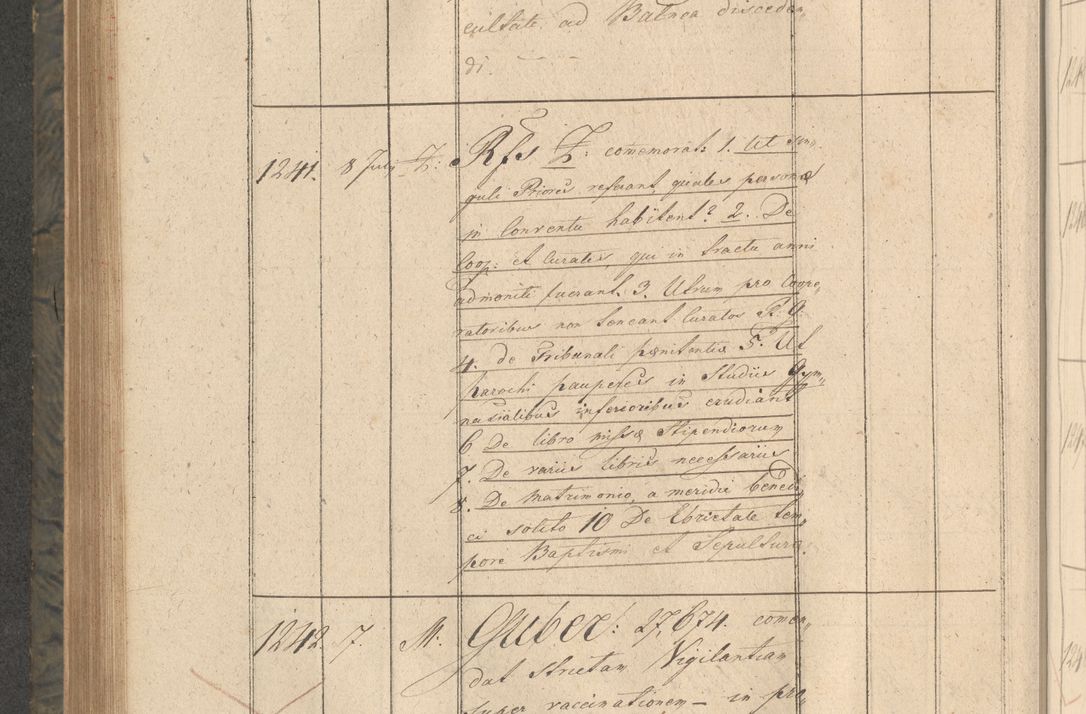 cultate ad Balnea disceden„
di.
1241. 8 July Z: Rfs Z: comemorat: 1. Ut sin„
guli Priores referant, quales personæ
in Conventu habitent? 2. De
Coop: et Curatis, qui in tractu anni
admoniti fuerant. 3. Utrum pro Coope„
ratoribus non teneant Curatos R. G.
4. de Tribunali pœnitentiæ 5. Ut
Parochi pauperes in Studiis Gym„
nasialibus inferioribus erudiant
6 De libro missæ Stipendiorum
7. De variis libris necessariis
8. De Matrimonio, a meridie benedi„
ci solito 10 De Ebrietate tem„
pore Baptismi et Sepulturæ.
1242. 7. M. Guber: 27,674. comen„
dat strictam Vigilantiam
super vaccinationem – in pro